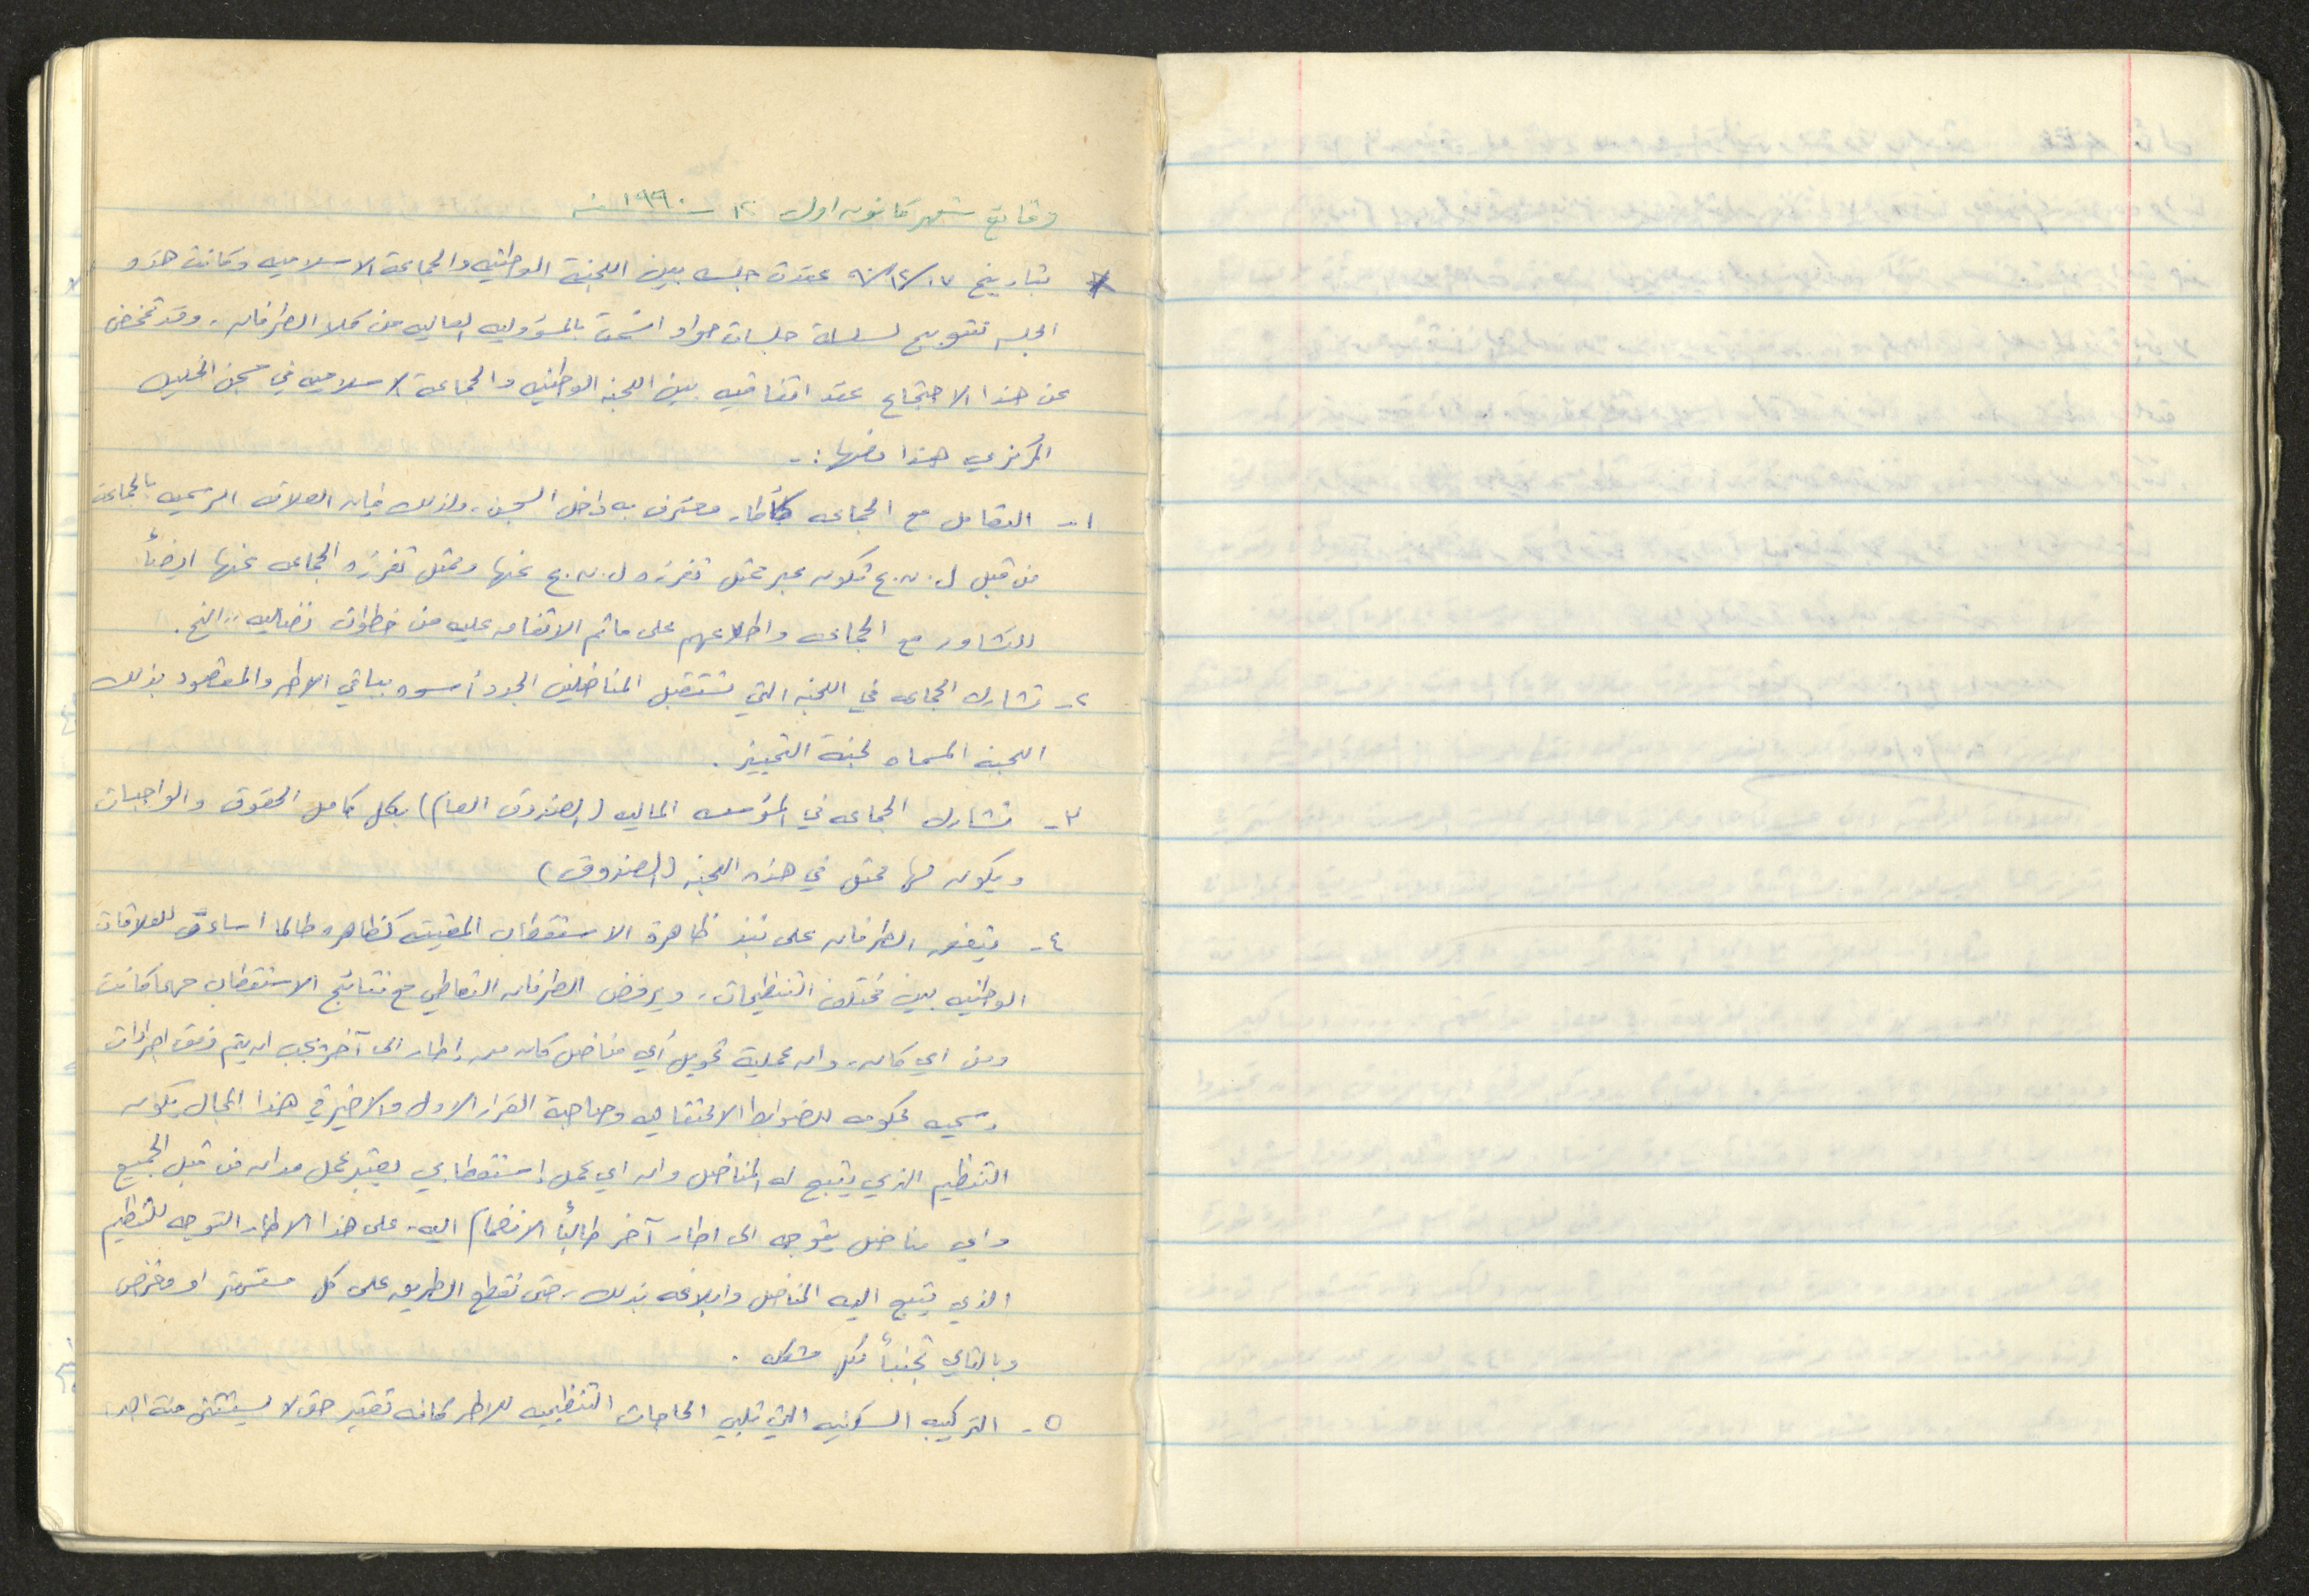 وقائع شهر كانون اول ١٢ - ١٩٩٠ م
* بتاريخ ٩٠/١٢/١٧ عقدت جلسه بين اللجنة الوطنيه والجماعة الاسلاميه وكانت هذه
الجلسه تتويج لسلسلة جلسات حوار اتسمت بالمسؤوليه العاليه من كلا الطرفان، وقد تمخض
عن هذا الاجتماع عقد اتفاقيه بين اللجنه الوطنيه والجماعة الاسلاميه في سجن الخليل
المركزي هذا نصها :-
١- التعامل مع الجماعه كأطار معترف به داخل السجن، ولذلك فإن العلاقه الرسميه بالجماعة
من قبل ل.ن.ع تكون عبر ممثل تفرزه ل.ن.ع عنها وممثل تفرزه الجماعه عنها ايضاً
للتشاور مع الجماعه واطلاعهم على ما تم الاتفاق عليه من خطوات نضاليه .. الخ.
٢- تشارك الجماعه في اللجنه التي تستقبل المناضلين الجدد أسوه بباقي الاطر والمقصود بذلك
اللجنه المسماه لجنة التمييز.
٣- تشارك الجماعه في المؤسسه الماليه (الصندوق العام) بكل كامل الحقوق والواجبات
ويكون لها ممثل في هذه اللجنه (الصندوق)
٤- يتفق الطرفان على نبذ ظاهرة الاستقطاب المقيته كظاهره طالما اساءت للعلاقات
الوطنيه بين مختلف التنظيمات، ويرفض الطرفان التعاطي مع نتائج الاستقطاب مهما كانت
ومن اي كان، وان عملية تحويل أي مناضل كان من إطار الى آخر يجب ان يتم وفق اجراءات
رسميه محكومه للضوابط الاعتقاليه وصاحبة القرار الاول والاخير في هذا المجال يكون
التنظيم الذي يتبع له المناضل وان اي عمل إستقطابي يعتبر عمل مدان من قبل الجميع
واي مناضل يتوجه الى اطار آخر طالباً الانضمام اليه، على هذا الاطار التوجه للتنظيم
الذي يتبع اليه المناضل وابلاغه بذلك، حتى نقطع الطريق على كل متستر او مغرض
وبالتالي تجنباً لكل مشكله.
٥- التركيبه السكنيه التي تلبي الحاجات التنظيميه للاطر كافه تعتبر حق لا يستثنى منه احد.